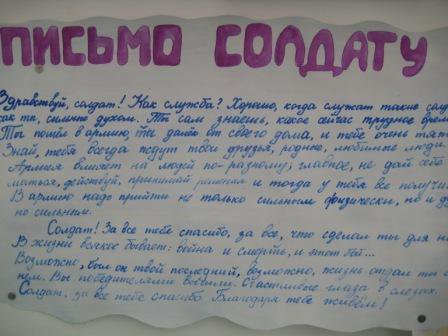 ПИСЬМО СОЛДАТУ
Здравствуй, солдат! Как служба? Хорошо, когда служат такие солд
как ты, сильные духом. Ты сам знаешь, какое сейчас трудное врем
Ты пошёл в армию, ты далёк от своего дома, и тебе очень тяж
Знай, тебя всегда ждут твои друзья, родные, любимые люди.
Армия влияет на людей по-разному, главное, не дай себе
маться, действуй, принимай решения и тогда у тебя все получи
В армию надо прийти не только сильным физически, но и ду
но сильным.
Солдат! За все тебе спасибо, за все, что сделал ты для на
В жизни всякое бывает: война и смерть, и этот бой...
Возможно, был он твой последний, возможно, жизнь отдал ты
нём. Вы победителями Счастливые глаза в слезах.
Солдат, за все тебе спасибо. Благодаря тебе живём!